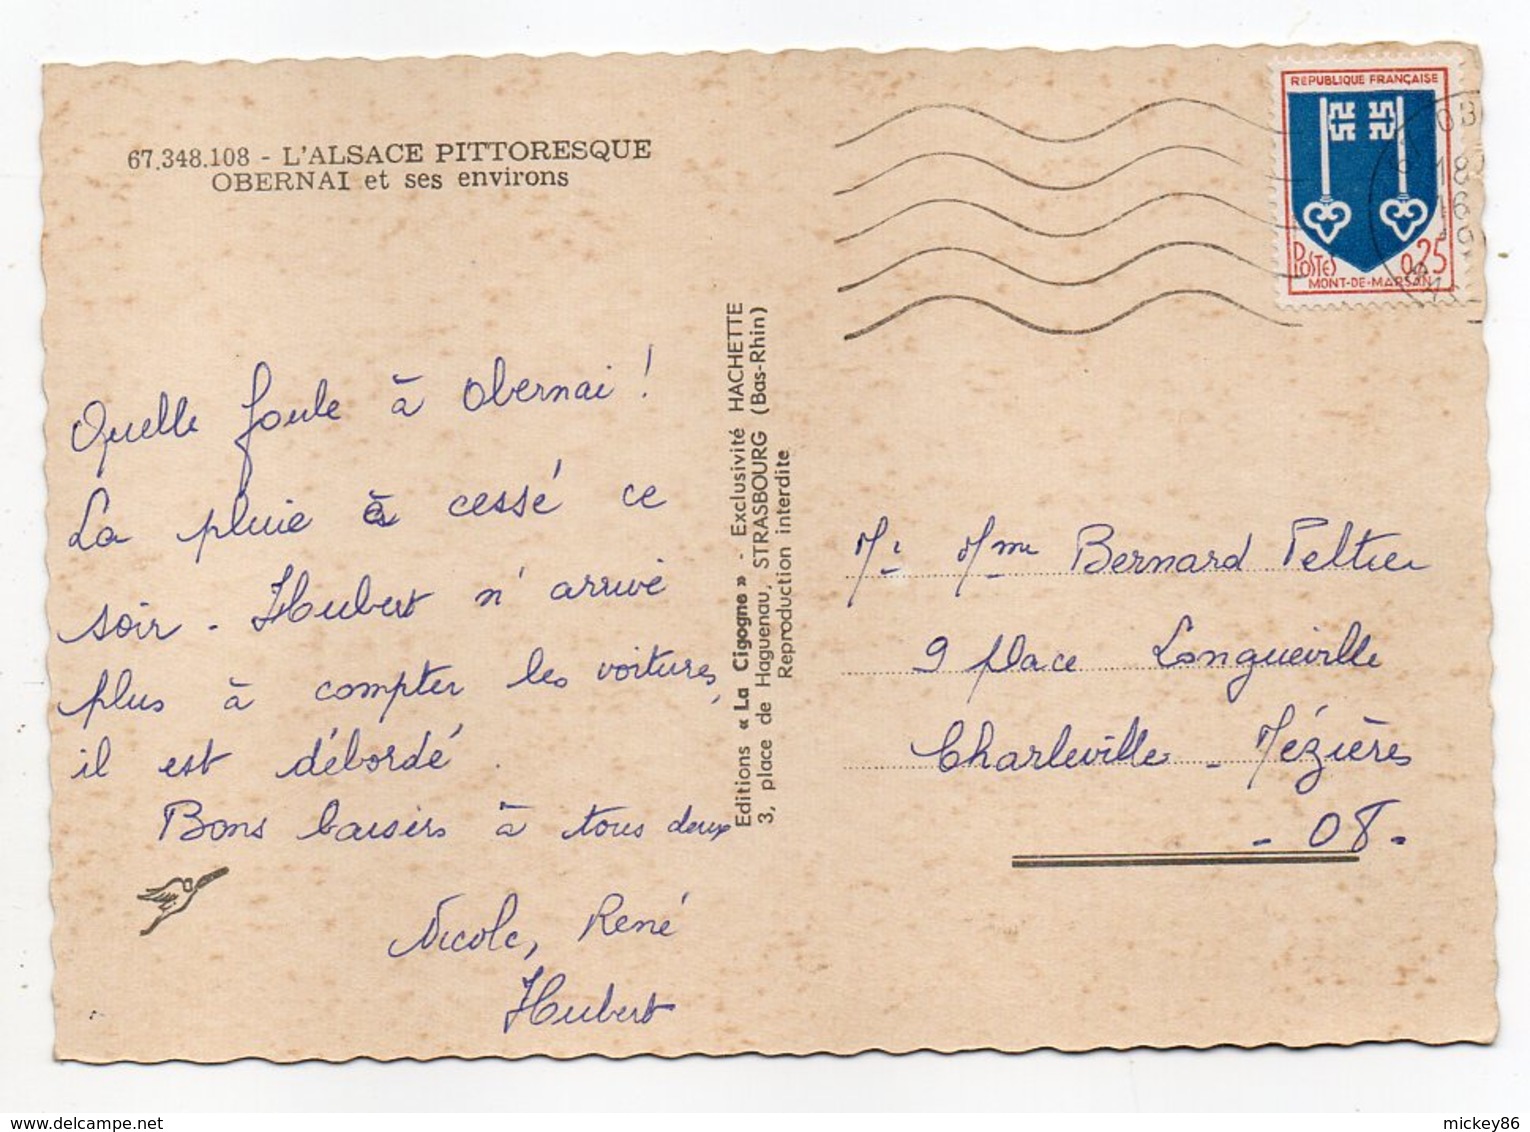 67.348.108 - L'ALSACE PITTORESQUE
OBERNAI et ses environs
Quelle foule à Obernai !
La pluie a cessé ce
soir - Hubert n'arrive
plus à compter les voitures,
il est débordé.
Bons baisers à tous deux
Nicole, René
Hubert
Editions « La Cigogne » - Exclusivité HACHETTE
3, place de Haguenau, STRASBOURG (Bas-Rhin)
Reproduction interdite
RÉPUBLIQUE FRANÇAISE
POSTES
0,25
MONT-DE-MARSAN
OB
18
16
Mr Mme Bernard Peltier
9 place Longueville
Charleville - Mézières
- 08 -
mickey86